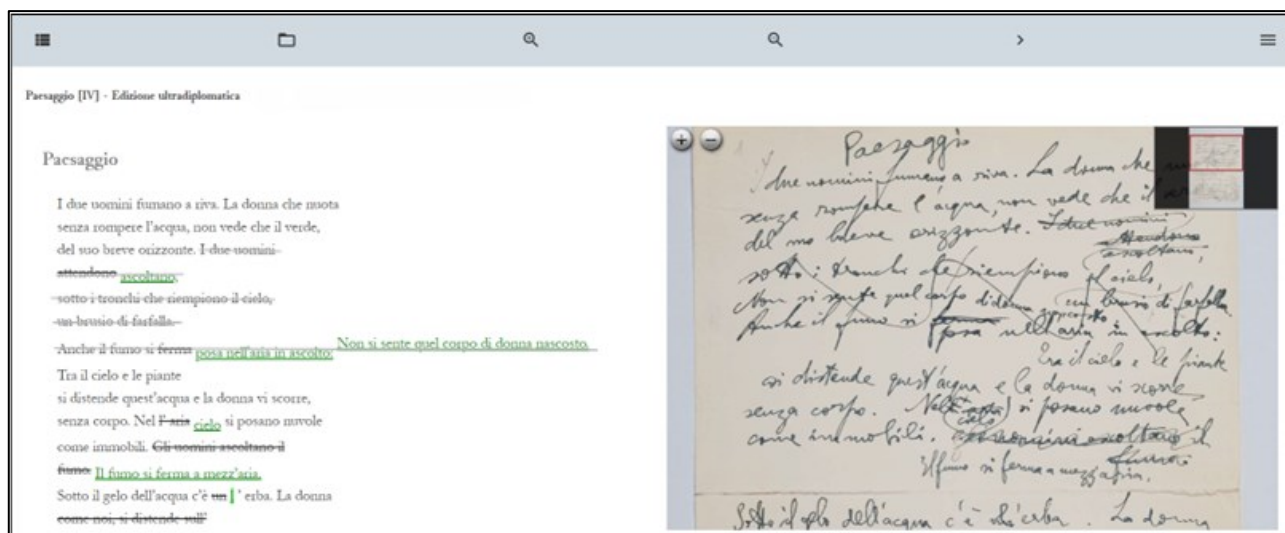 Paesaggio [IV] - Edizione ultradiplomatica
Paesaggio
I due uomini fumano a riva. La donna che nuota
senza rompere l'acqua, non vede che il verde,
del suo breve orizzonte. I due uomini
attendono ascoltano,
sotto i tronchi che riempiono il cielo,
un brusio di farfalla.
Anche il fumo si ferma posa nell'aria in ascolto: Non si sente quel corpo di donna nascosto.
Tra il cielo e le piante
si distende quest'acqua e la donna vi scorre,
senza corpo. Nel l'aria cielo si posano nuvole
come immobili. Gli uomini ascoltano il
fumo. Il fumo si ferma a mezz'aria.
Sotto il gelo dell'acqua c'è un l'erba. La donna
come noi, si distende sull'
Paesaggio
I due uomini fumano a riva. La donna che
senza rompere l'acqua, non vede che il
del suo breve orizzonte. I due uomini
attendono
ascoltano,
sotto i tronchi che riempiono il cielo,
Non si sente quel corpo di donna nascosto un brusio di farfalla
Anche il fumo si ferma posa nell'aria in ascolto:
Tra il cielo e le piante
si distende quest'acqua e la donna vi scorre,
senza corpo. Nell'aria cielo si posano nuvole
come immobili. Gli uomini ascoltano il
fumo
Il fumo si ferma a mezz'aria.
Sotto il gelo dell'acqua c'è erba. La donna